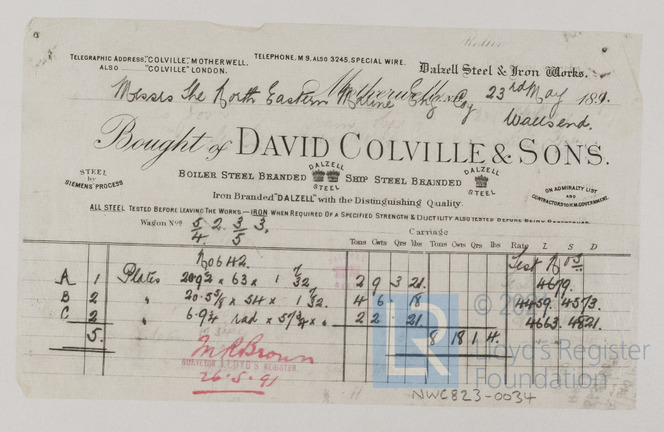 TELEGRAPHIC ADDRESS, "COLVILLE", MOTHERWELL.
ALSO "COLVILLE" LONDON.
TELEPHONE, M 9, ALSO 3245, SPECIAL WIRE.
Dalzell Steel & Iron Works.
Motherwell, 23rd May 1891.
Messrs The North Eastern Marine Eng Coy
Wallsend.
Bought of DAVID COLVILLE & SONS.
STEEL by SIEMENS' PROCESS
BOILER STEEL BRANDED DALZELL STEEL SHIP STEEL BRANDED DALZELL STEEL
ON ADMIRALTY LIST AND CONTRACTORS TO H.M. GOVERNMENT.
Iron Branded "DALZELL" with the Distinguishing Quality.
ALL STEEL TESTED BEFORE LEAVING THE WORKS—IRON WHEN REQUIRED OF A SPECIFIED STRENGTH & DUCTILITY ALSO TESTED BEFORE BEING
Wagon Nos 5/4. 2. 3/5 3.
Carriage
Tons Cwts Qrs lbs Tons Cwts Qrs lbs Rate L S D
No 642. Test Nos
A 1 Plates × 63 × 1 7/32 2 9 3 21. 4679.
B 2 " 20·5⅝ × 54 × 1 7/32 4 6 · 18 4459. 4573.
C 2 " rad × × " 2 2 21. 4663. 4821.
5. 8 18 1 4.
M R Brown
SURVEYOR LLOYD'S REGISTER.
26-5-91
LR
Lloyd's Register
Foundation
NWC823-0034